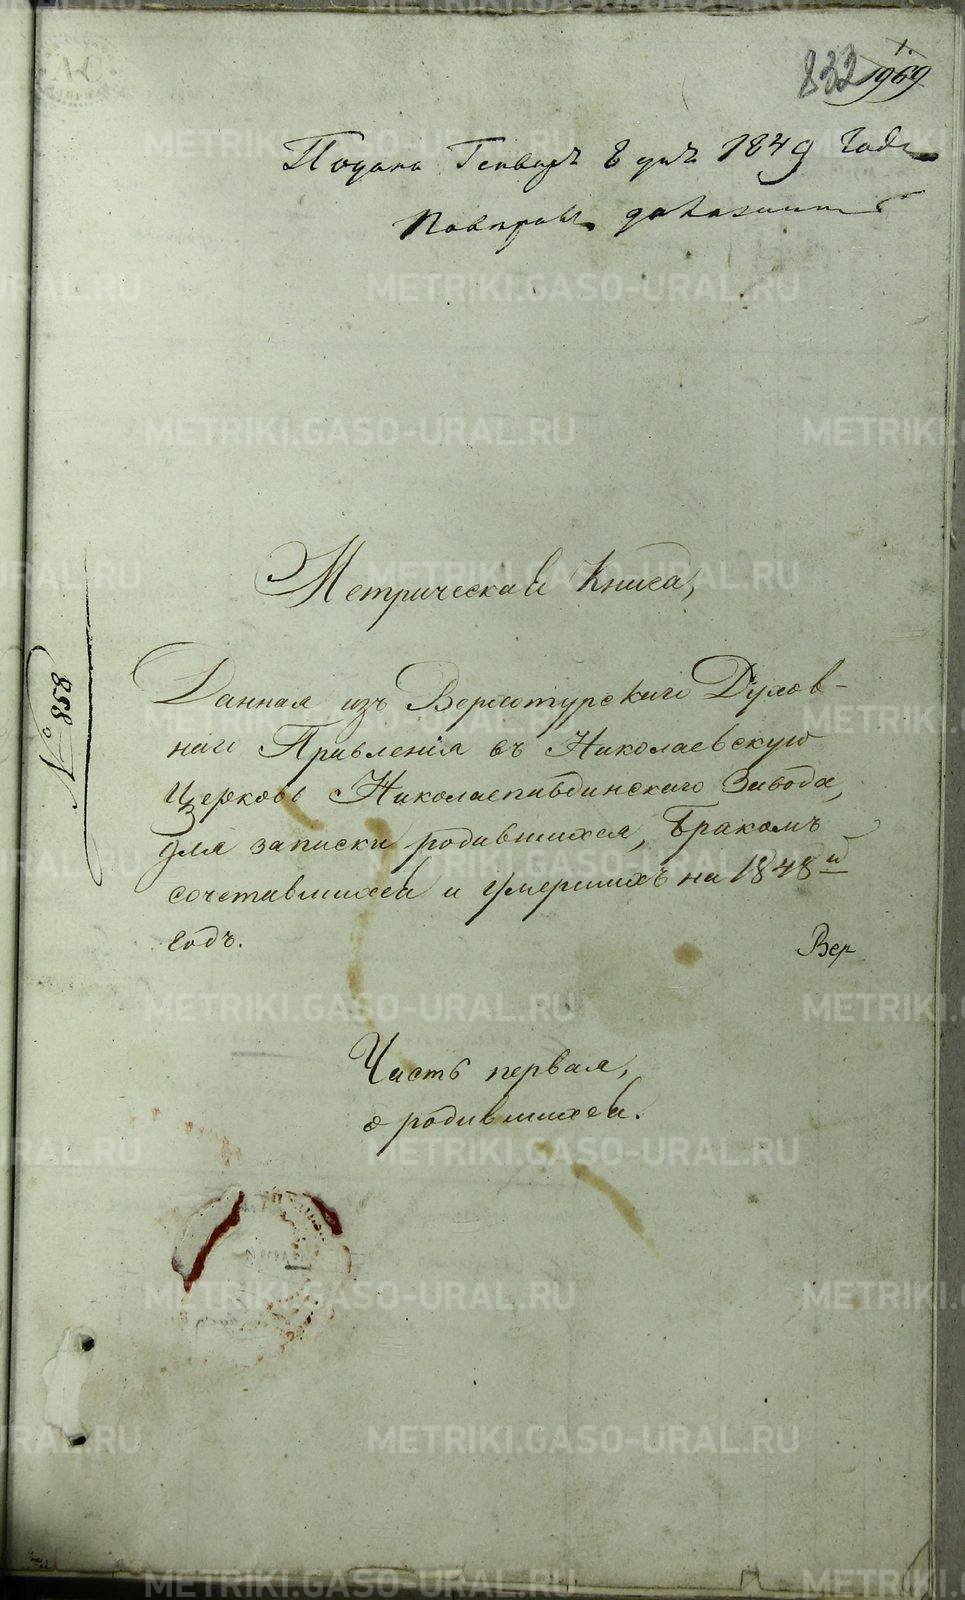 832 1969
Подана Генваря 8 дня 1849 Года
Метрическая Книга,
Данная изъ Верхотурскаго Духов-
наго Правленія въ Николаевскую
Церковь Николаепавдинскаго Завода,
для записки родившихся, Бракомъ
сочетавшихся и умершихъ на 1848й
годъ.
Вер
Часть первая,
о родившихся.
№ 858
METRIKI.GASO-URAL.RU